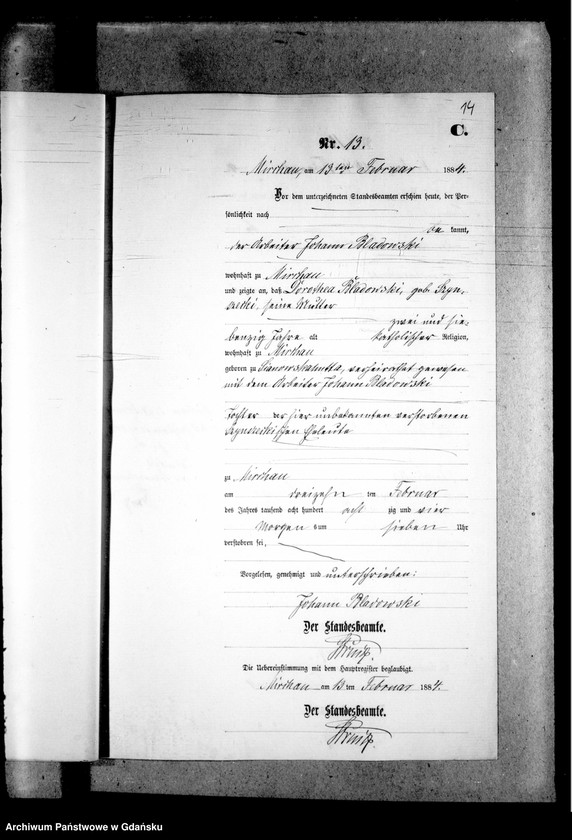 14
C.
Nr. 13.
Mirchau, am 13ten Februar 1884.
Vor dem unterzeichneten Standesbeamten erschien heute, der Per-
sönlichkeit nach
be kannt,
der Arbeiter Johann Bladowski
wohnhaft zu Mirchau
und zeigte an, daß Dorothea Bladowski, geb.
seine Mutter
zwei und sie-
benzig Jahre alt katholischer Religion,
wohnhaft zu Mirchau
geboren zu verheirathet gewesen
mit dem Arbeiter Johann Bladowski
Tochter der hier unbekannten verstorbenen
schen Eheleute
zu Mirchau
am dreizehn ten Februar
des Jahres tausend acht hundert acht zig und vier
Morgens um sieben Uhr
verstorben sei,
Vorgelesen, genehmigt und unterschrieben:
Johann Bladowski
Der Standesbeamte.
Die Uebereinstimmung mit dem Hauptregister beglaubigt.
Mirchau am 13 ten Februar 1884.
Der Standesbeamte.
Archiwum Państwowe w Gdańsku